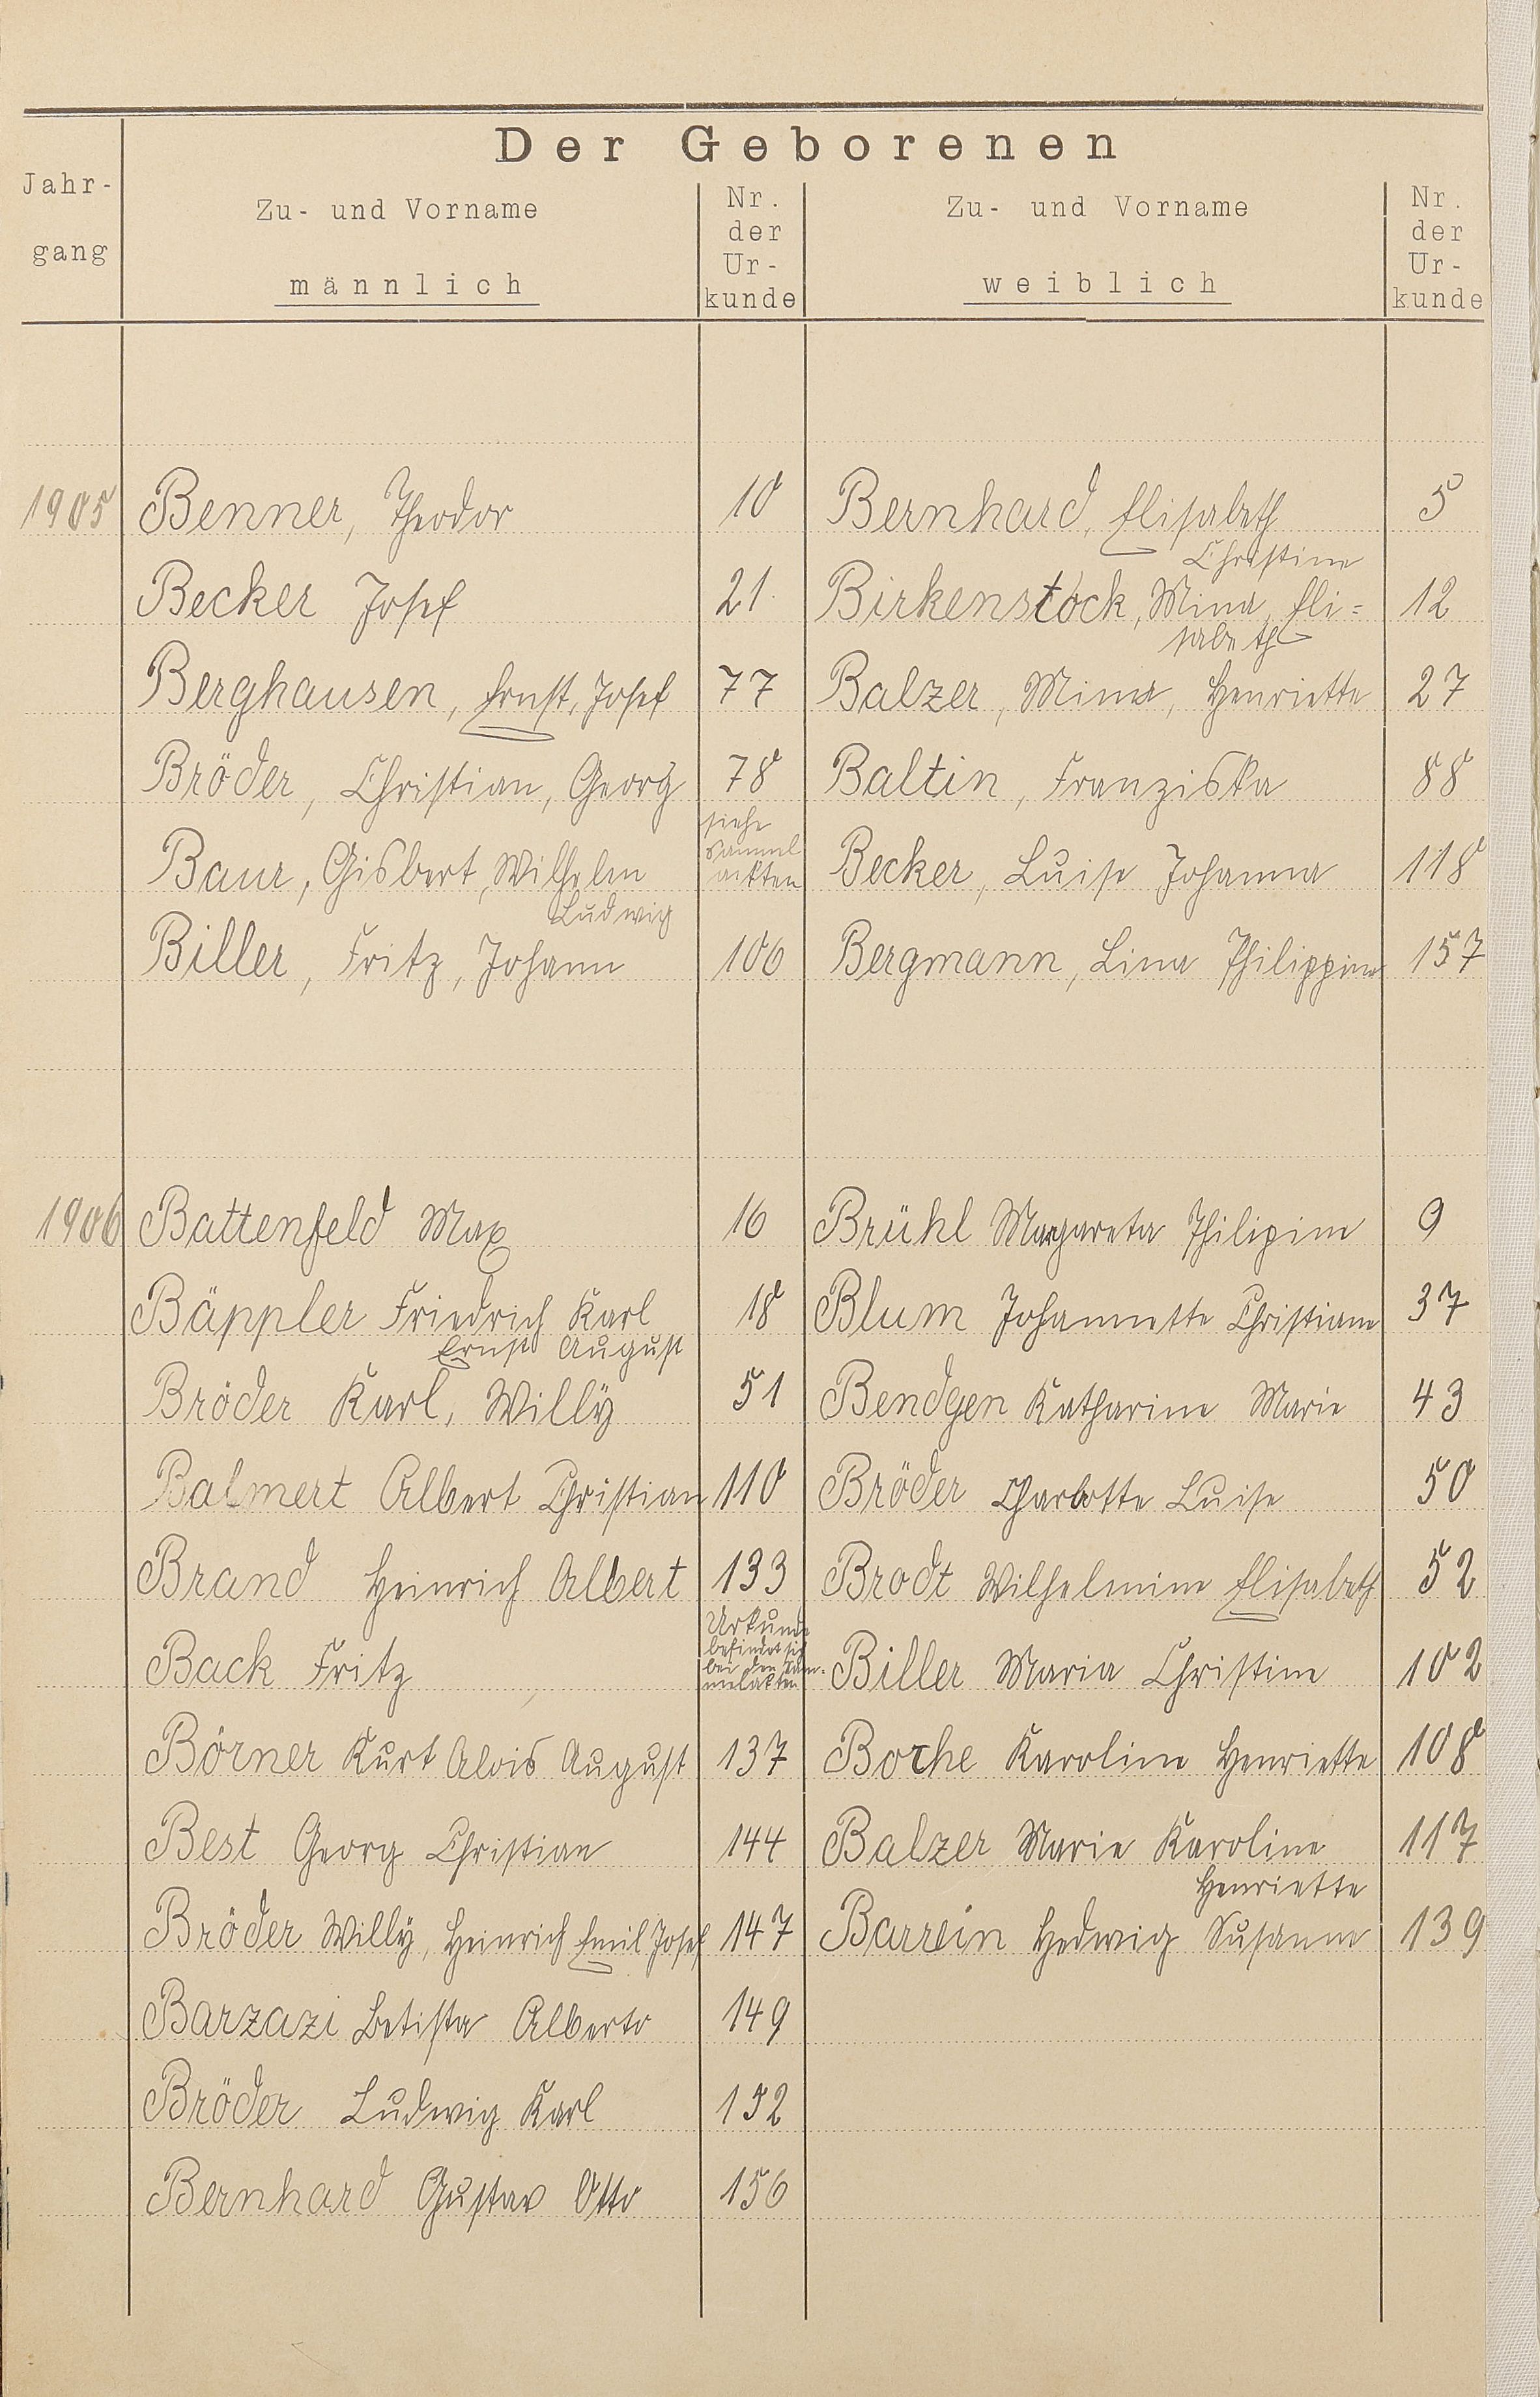 Der Geborenen
Jahr-
gang
Zu- und Vorname
männlich
Nr.
der
Ur-
kunde
Zu- und Vorname
weiblich
Nr.
der
Ur-
kunde
1905 Benner, Theodor 10 Bernhard, Elisabeth 5
Christine
Becker Josef 21. Birkenstock, Mina, Eli= 12
sabeth
Berghausen, Ernst, Josef 77 Balzer, Mina, Henriette 27
Bröder, Christian, Georg 78 Baltin, Franziska 88
siehe
Sammel
akten
Baur, Gisbert, Wilhelm Becker, Luise Johanna 118
Ludwig
Biller, Fritz, Johann 106 Bergmann, Lina Philippine 157
1906 Battenfeld Max 16 Brühl Margareta Philipine 9
Bäppler Friedrich Karl 18 Blum Johannette Christiane 37
Ernst August
Bröder Karl, Willy 51 Bendgen Katharine Marie 43
Balmert Albert Christian 110 Bröder Charlotte Luise 50
Brand Heinrich Albert 133 Brodt Wilhelmine Elisabeth 52
Urkunde
befindet sich
bei den Sam-
melakten
Back Fritz Biller Maria Christine 102
Börner Kurt Alois August 137 Boche Karoline Henriette 108
Best Georg Christian 144 Balzer Marie Karoline 117
Henriette
Bröder Willy, Heinrich Emil Josef 147 Barrein Hedwig Susanne 139
Barzazi Betista Alberto 149
Bröder Ludwig Karl 152
Bernhard Gustav Otto 156